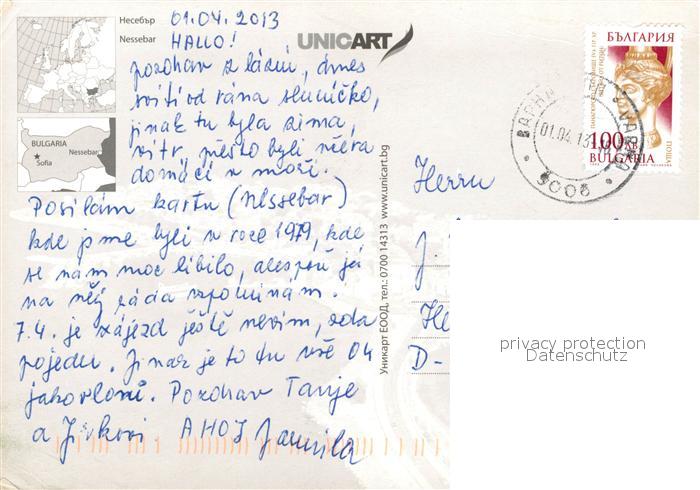 Несебър
Nessebar
01.04.2013
HALLO!
UNICART
pozdrav z lázní, dnes
svítí od rána sluníčko,
jinak tu byla zima,
vítr, přesto byli včera
domácí v moři.
Posílám kartu (Nessebar)
kde jsme byli v roce 1979, kde
se nám moc líbilo, alespoň já
na něj ráda vzpomínám.
7.4. je zájezd ještě nevím, zda
pojedu. Jinak je to tu vše OK
jako vloni. Pozdrav Tanje
a Jirkovi AHOJ Jarmila
BULGARIA
Nessebar
Sofia
Уникарт ЕООД, тел.: 0700 14313 www.unicart.bg
БЪЛГАРИЯ
1.00 лв.
BULGARIA
ПОЩА
ВАРНА
VARNA
01.04.13
9006
Herru
J.
He
D-
privacy protection
Datenschutz